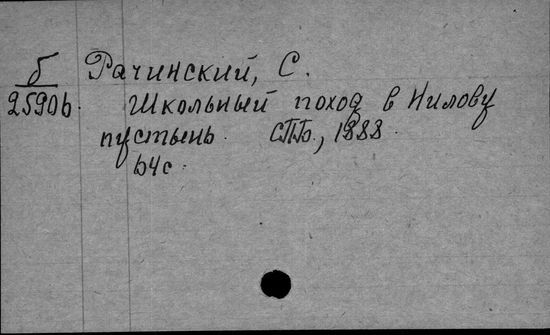 б Рачинский, С.
25906. Школьный поход в Нилову
пустынь. СПб., 1888.
64с.